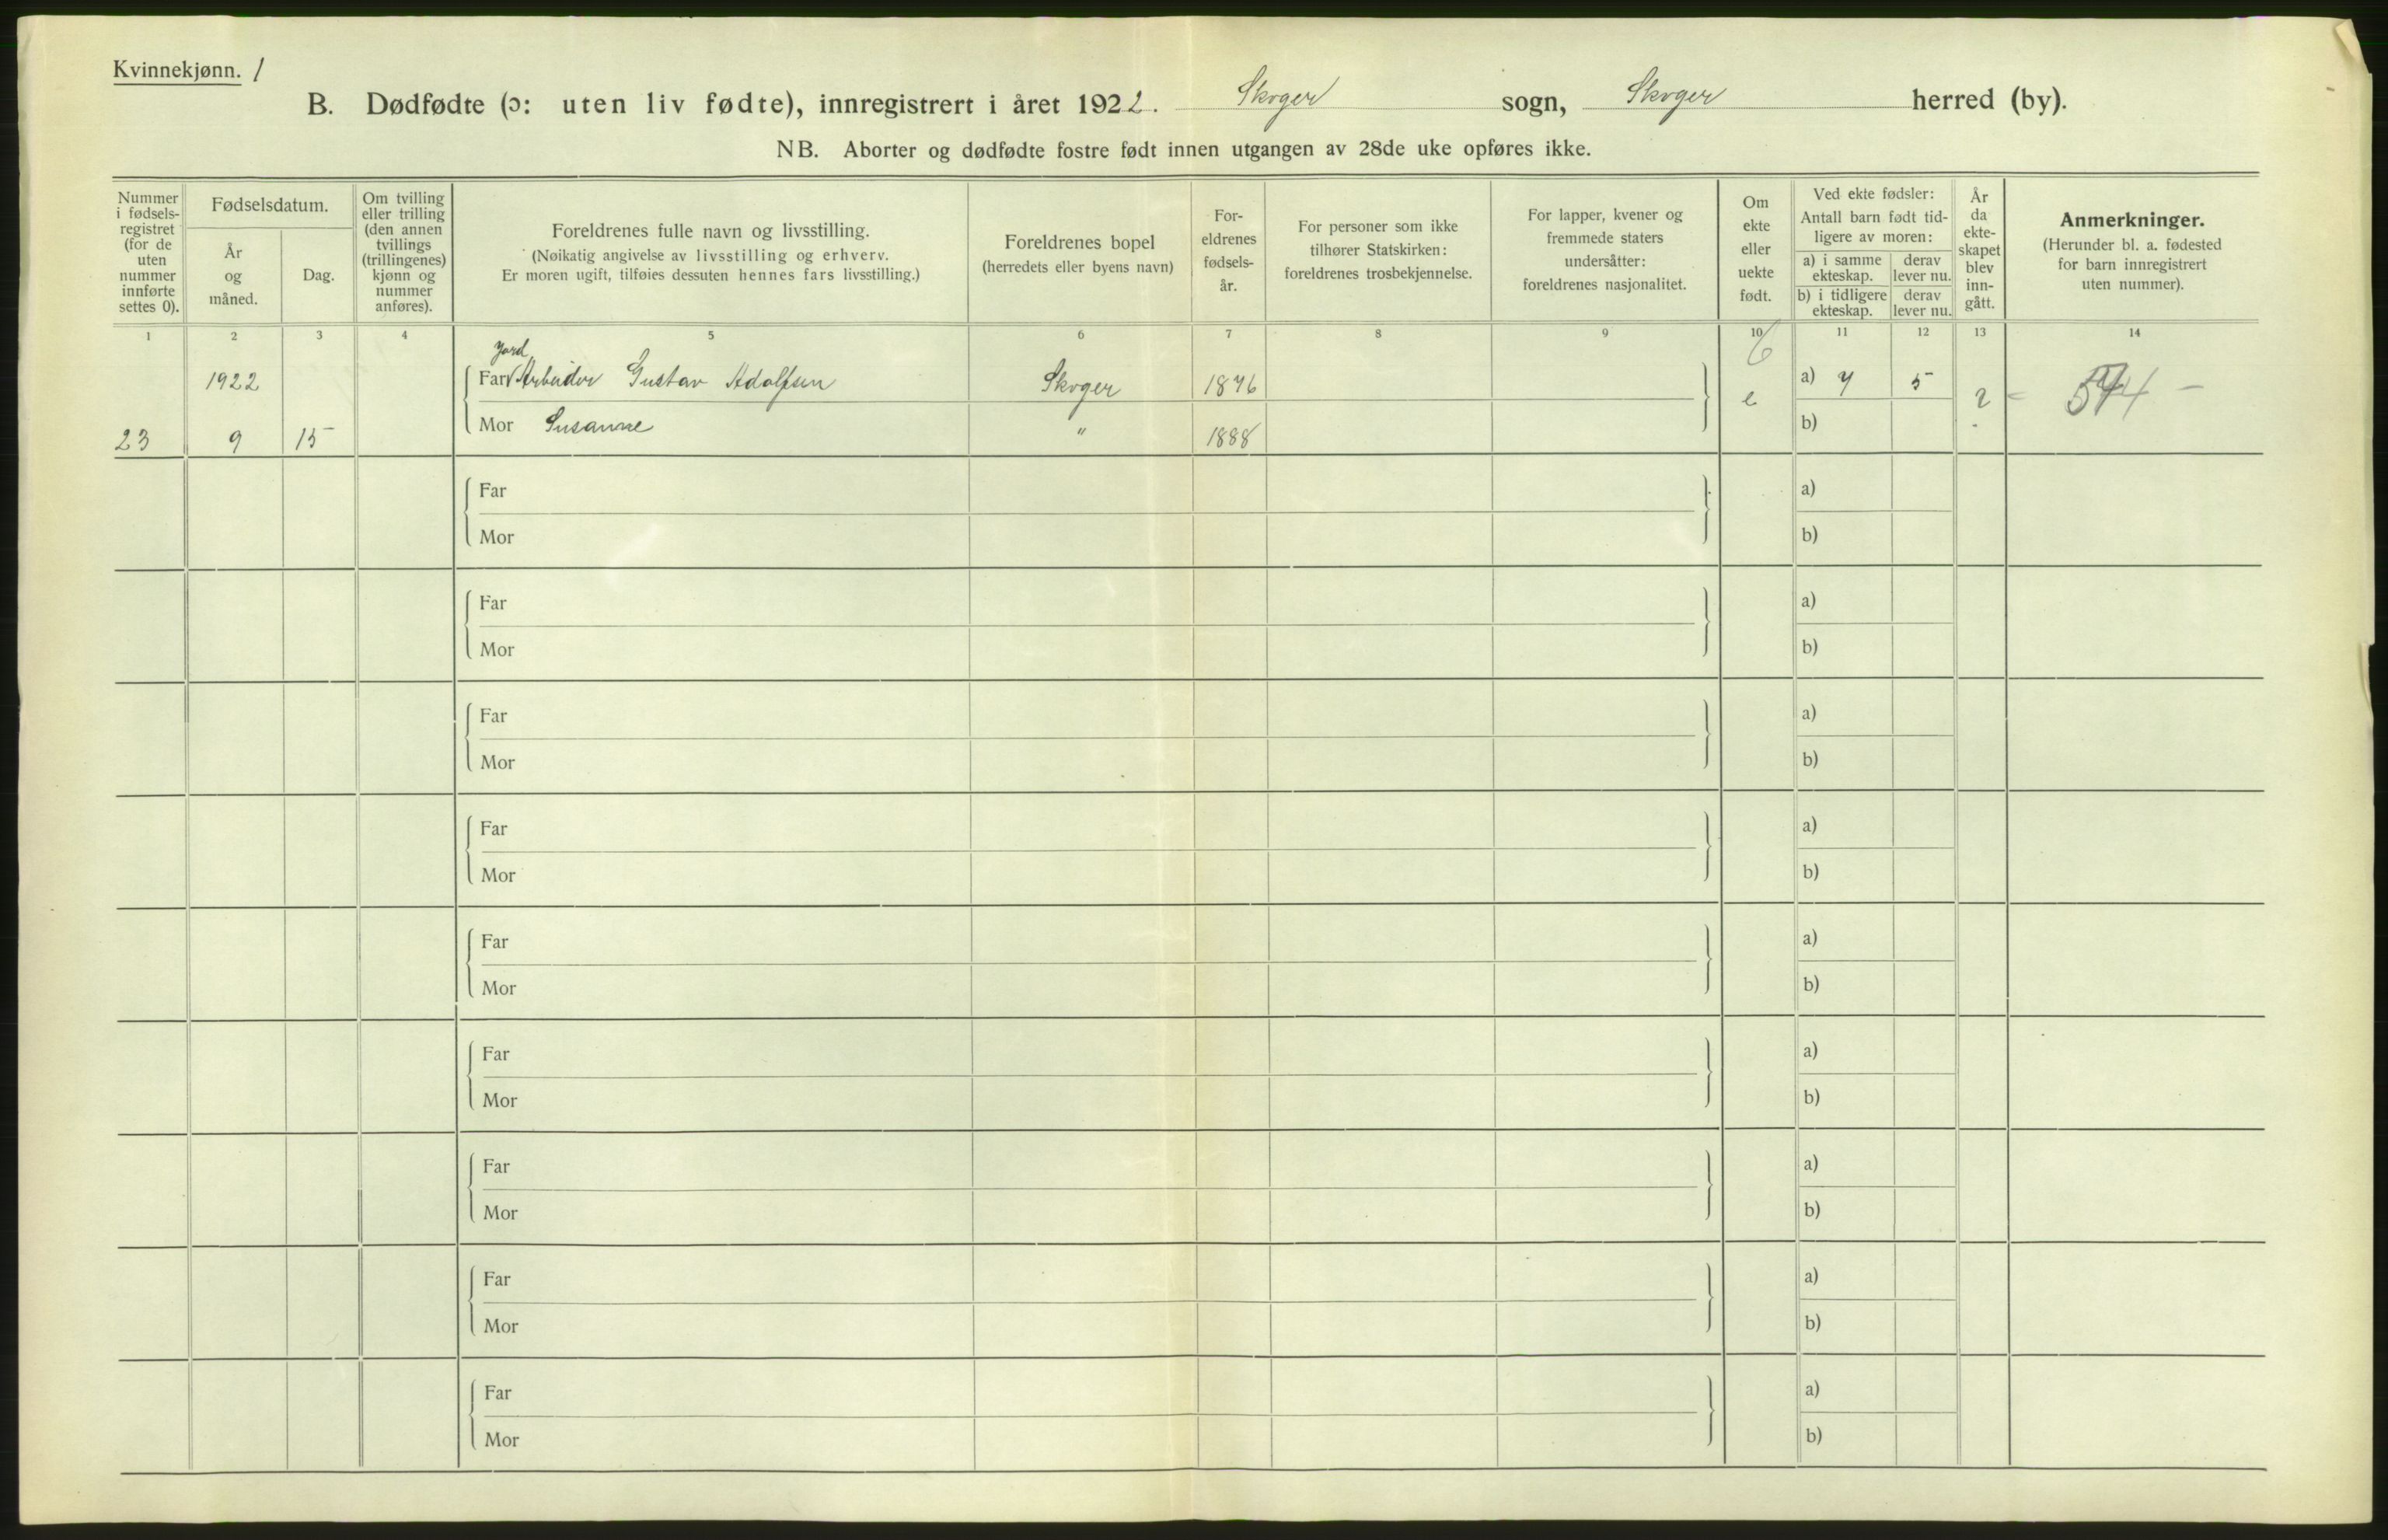 Kvinnekjønn. 1
B. Dødfødte (ɔ: uten liv fødte), innregistrert i året 1922. Skoger sogn, Skoger herred (by).
NB. Aborter og dødfødte fostre født innen utgangen av 28de uke opføres ikke.
Nummer i fødsels-registret (for de uten nummer innførte settes 0).
Fødselsdatum.
År og måned.
Dag.
Om tvilling eller trilling (den annen tvillings (trillingenes) kjønn og nummer anføres).
Foreldrenes fulle navn og livsstilling.
(Nøikatig angivelse av livsstilling og erhverv.
Er moren ugift, tilføies dessuten hennes fars livsstilling.)
Foreldrenes bopel
(herredets eller byens navn)
For-eldrenes fødsels-år.
For personer som ikke tilhører Statskirken: foreldrenes trosbekjennelse.
For lapper, kvener og fremmede staters undersåtter: foreldrenes nasjonalitet.
Om ekte eller uekte født.
Ved ekte fødsler:
Antall barn født tid-ligere av moren:
a) i samme ekteskap.
derav lever nu.
b) i tidligere ekteskap.
derav lever nu.
År da ekte-skapet blev inn-gått.
Anmerkninger.
(Herunder bl. a. fødested for barn innregistrert uten nummer).
1 2 3 4 5 6 7 8 9 10 11 12 13 14
6
Jord
1922 Far Arbeider Gustav Adolfsen Skoger 1876 e a) 7 5 ?
23 9 15 Mor Susanne " 1888 b)
Far a)
Mor b)
Far a)
Mor b)
Far a)
Mor b)
Far a)
Mor b)
Far a)
Mor b)
Far a)
Mor b)
Far a)
Mor b)
Far a)
Mor b)
Far a)
Mor b)